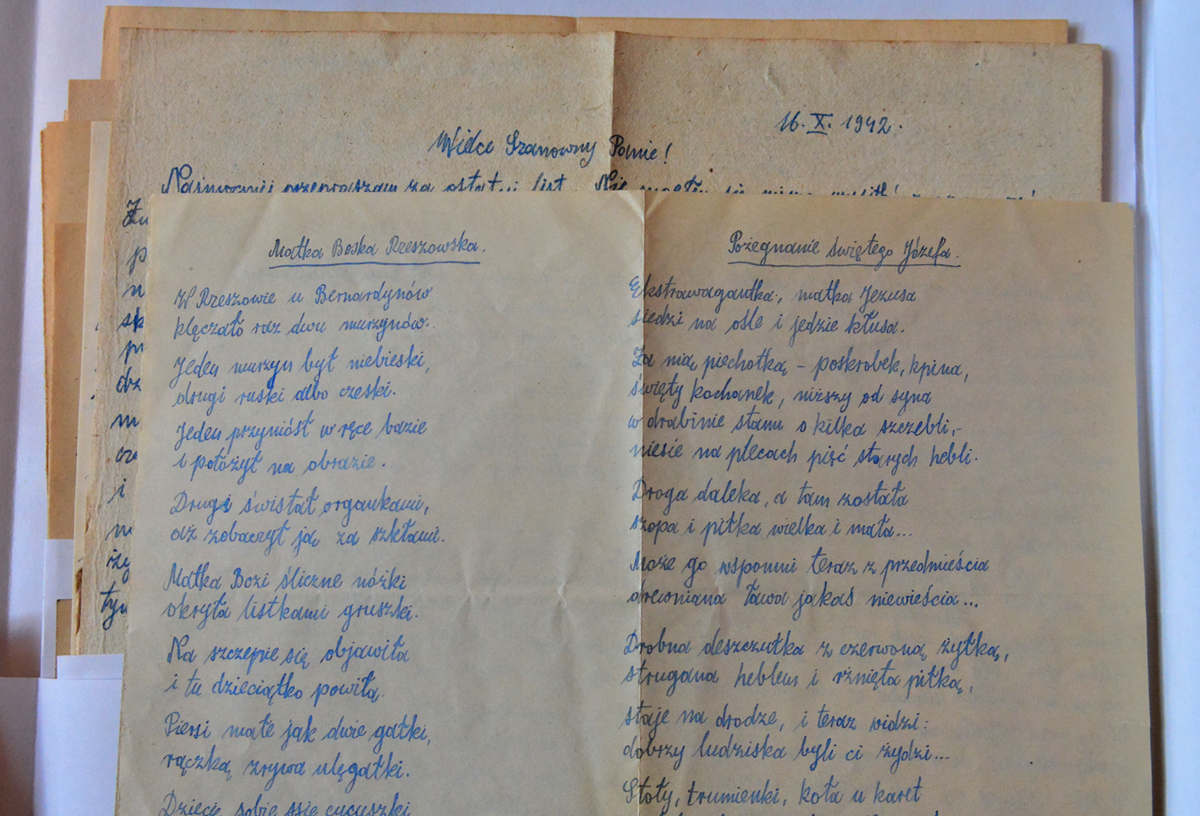 16. X. 1942.
Wielce Szanowny Panie!
Najmocniej przepraszam za ostatni list. Nie
Matka Boska Rzeszowska.
W Rzeszowie u Bernardynów
klęczało raz dwu murzynów.
Jeden murzyn był niebieski,
drugi ruski albo czeski.
Jeden przyniósł w ręce bazie
i położył na obrazie.
Drugi świstał organkami,
aż zobaczył ją za szkłami.
Matka Bozi śliczne nóżki
okryła listkami gruszki.
Na szczepie się objawiła
i tu dzieciątko powiła.
Piersi małe jak dwie gałki,
rączką zrywa ulęgałki.
Dziecię sobie ssie cycuszki
Pożegnanie świętego Józefa.
Ekstrawagantka, matka Jezusa
siedzi na ośle i jedzie kłusa.
Za nią piechotką – poskrobek, kpina,
święty kochanek, niższy od syna
w drabinie stanu o kilka szczebli,–
niesie na plecach pięć starych hebli.
Droga daleka, a tam została
szopa i piłka wielka i mała...
Może go wspomni teraz z przedmieścia
drewniana ława jakaś niewieścia...
Drobna deszczułka z czerwoną żyłką,
strugana heblem i rżnięta piłką,
staje na drodze, i teraz widzi:
dobrzy ludziska byli ci żydzi...
Stoły, trumienki, koła u karet